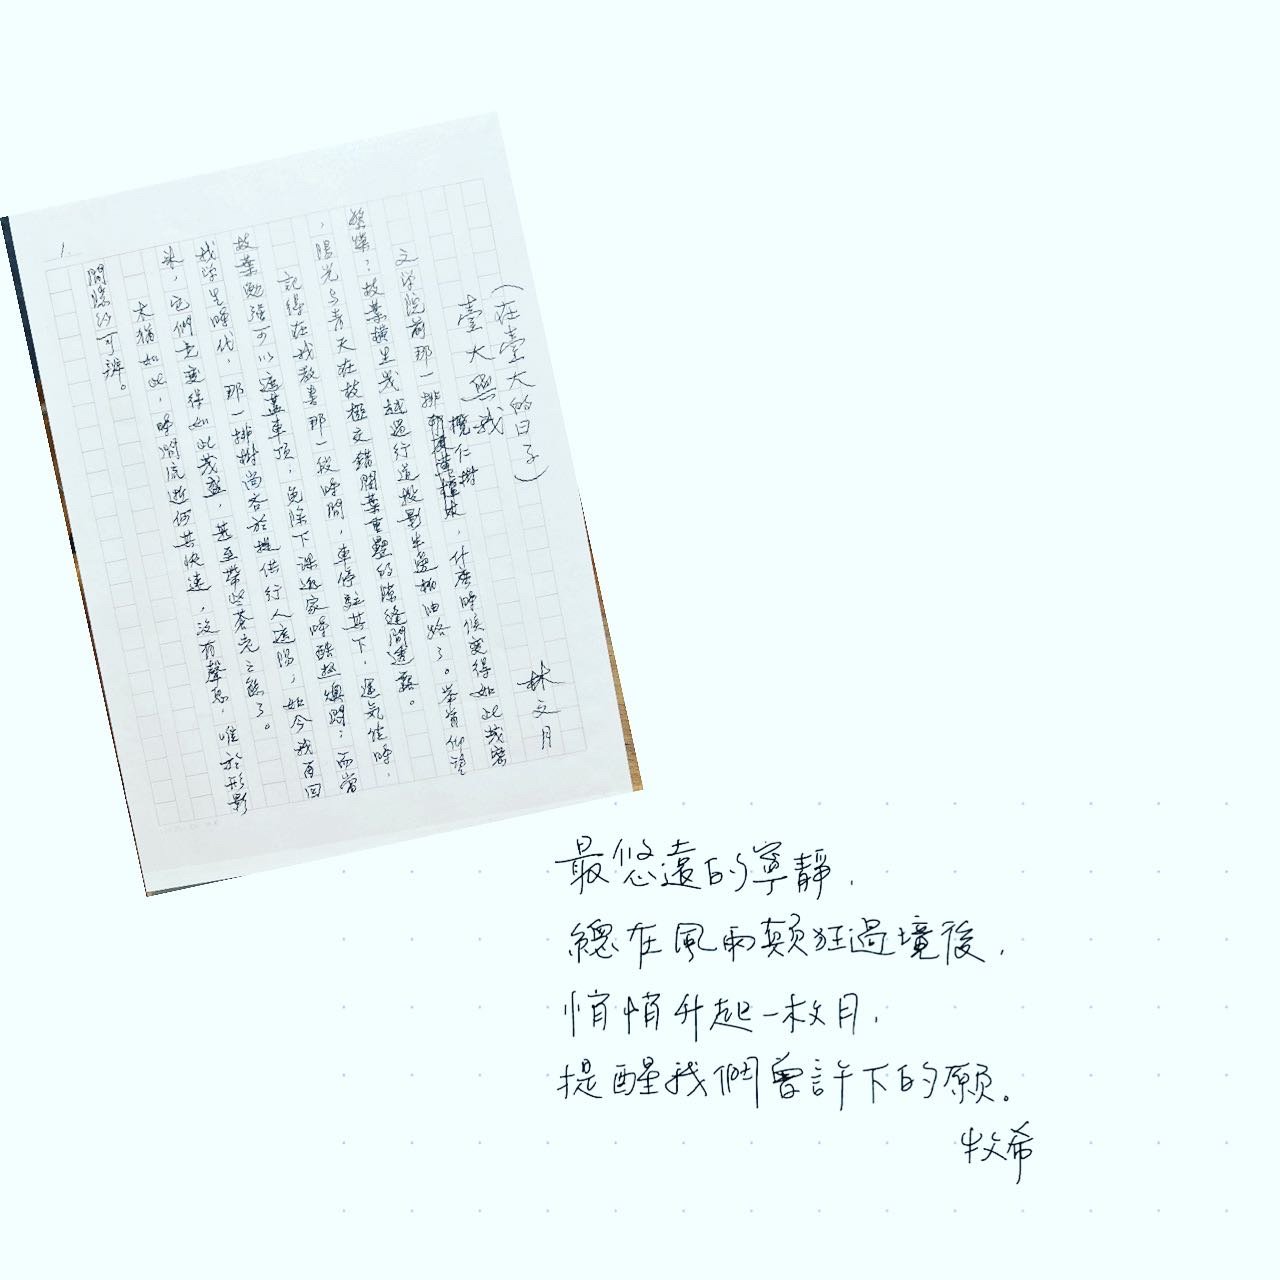 (在臺大的日子)
臺大與我
林文月
欖仁樹
文学院前那一排,什麼時候變得如此茂密
繁燦?枝葉橫生茂越過行道投影至邊柏油路了。举首仰望
,陽光与青天在枝椏交錯間葉重疊的隙縫間透露。
記得在我教書那一段時間,車停駐其下,運気佳時,
枝葉勉強可以遮蓋車頂,免除下課返家時酷热燠悶;而當
我学生時代,那一排樹尚吝於提供行人遮陽,如今我再回
來,它們竟變得如此茂盛,甚至帶些蒼老之態了。
木猶如此,時間流逝何其快速,沒有聲息,唯於形影
間隙約可辨。
1
最悠遠的寧靜,
總在風雨顛狂過境後,
悄悄升起一枚月,
提醒我們曾許下的願。
牧希